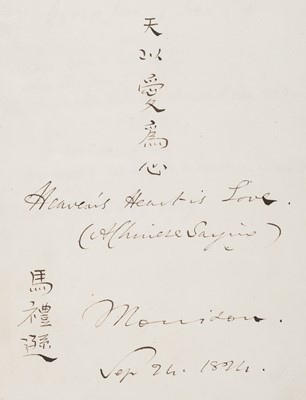 天以愛為心
Heaven's Heart is Love.
(A Chinese Saying)
馬禮遜
Morrison.
Sep 24. 1824.